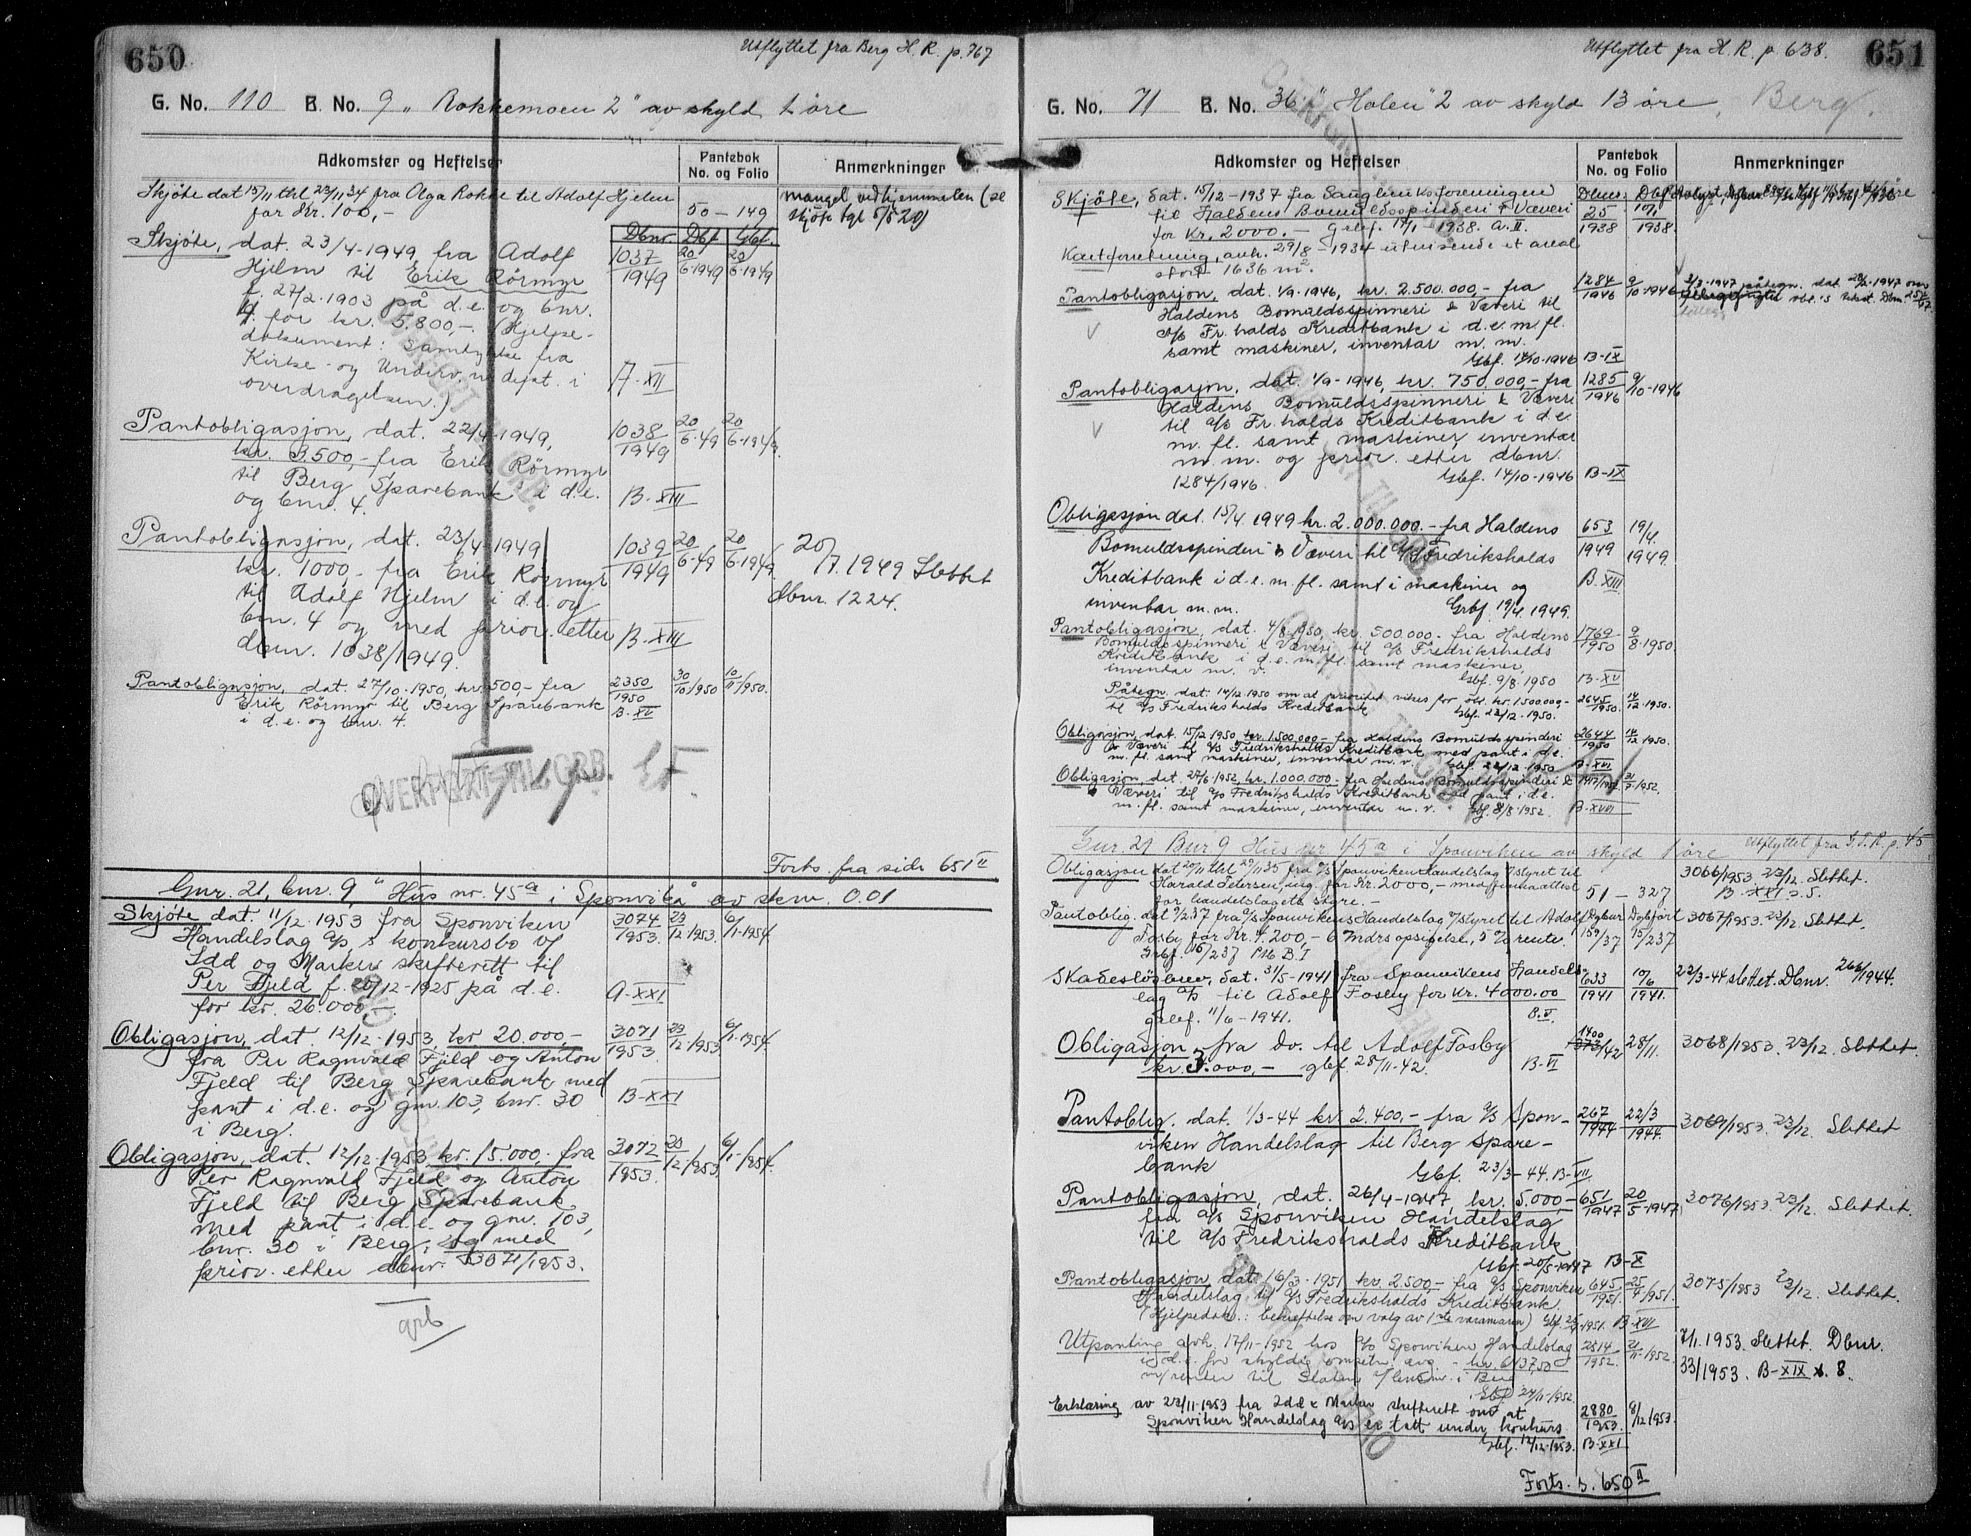 650
Utflyttet fra Berg H. R. p. 767
G. No. 110 B. No. 9 „ Rokkemoen 2" av skyld 1 øre
Adkomster og Heftelser
Pantebok No. og Folio
Anmerkninger
Skjøte dat 15/11 thl 23/11 34 fra Olga Rokke til Adolf Hjelm
for Kr. 100,-
50 – 149
mangel ved hjemmelen (se
skjøte tgl
Dbnr. Dbf. Gbf.
Skjøte, dat. 23/4-1949 fra Adolf
1037/1949 20/6-1949 20/6-1949
Hjelm til Erik Rörmyr
f. 27/2-1903 på d.e. og bnr.
4 for kr. 5.800,- (Hjelpe-
dokument: samtykke fra
Kirke- og Underv.ns depat. i
overdragelsen.)
A-XII
Pantobligasjon, dat. 22/4-1949,
1038/1949 20/6-49 20/6-1949.
kr. 3.500,- fra Erik Rörmyr
til Berg Sparebank i d.e.
og bnr. 4.
B-XIII
Pantobligasjon, dat. 23/4-1949
1039/1949 20/6-49 20/6-1949.
20/7.1949 Slettet
kr. 1000,- fra Erik Rörmyr
dbnr. 1224.
til Adolf Hjelm i d.e. og
bnr. 4 og med prior. etter
B-XIII
dbnr. 1038/1949.
Pantobligasjon, dat. 27/10-1950, kr. 500,- fra
2350/1950 30/10/1950 10/11/1950.
Erik Rörmyr til Berg Sparebank
B-XV
i d.e. og bnr. 4.
OVERFØRT TIL GRB.
Forts. fra side 651 II
Gnr. 21, bnr. 9, "Hus nr. 45a i Sponvika av skm. 0.01
Skjøte dat. 11/12.1953 fra Sponviken
3074/1953. 23/12.1953. 6/1-1954
Handelslag a/s's konkursbo v/
Idd og Marker skifterett til
Per Fjeld f. 20/12-1925 på d.e.
for kr. 26.000,-
A-XXI
Obligasjon, dat. 12/12.1953, kr. 20.000,-
3071/1953. 23/12.1953 6/1-1954.
fra Per Ragnvald Fjeld og Anton
Fjeld til Berg Sparebank med
pant i d.e. og gnr. 103, bnr. 30
B-XXI
i Berg.
Obligasjon, dat. 12/12.1953 kr. 15.000,- fra
3072/1953. 23/12.1953 6/1-1954.
Per Ragnvald Fjeld og Anton
Fjeld til Berg Sparebank
med pant i d.e. og gnr. 103,
bnr. 30 i Berg, og med
prior. etter dbnr. 3071/1953.
grb
Utflyttet fra H. R. p. 638.
651
G. No. 71 B. No. 36 " Holen" 2 av skyld 13 øre, Berg.
Adkomster og Heftelser
Pantebok No. og Folio
Anmerkninger
Skjøte, dat. 15/12-1937 fra Sauglinksforeningen
Dbnr. Dbf.
til Haldens Bomuldsspinderi & Væveri
25/1938 10/1 1938.
for kr. 2000.- grbf. 17/1-1938. A.II.
Kartforretning, avh. 29/8-1934 utvisende et areal
stort 1636 m2.
Pantobligasjon, dat. 1/9-1946, kr. 2.500.000,- fra
1284/1946 9/10-1946
3/3-1947 påtegn. dat. 28/2-1947
Haldens Bomuldsspinneri & Væveri til
A/S Fr.halds Kreditbank i d.e. m. fl.
samt maskiner, inventar m. m.
Gbf. 14/10-1946 B-IX
Pantobligasjon, dat. 1/9-1946, kr. 750.000,- fra
1285/1946 9/10-1946
Haldens Bomuldsspinneri & Væveri
til A/S Fr.halds Kreditbank i d.e.
m. fl. samt maskiner, inventar
m. m. og prior. etter dbnr.
1284/1946.
Gbf. 14/10-1946 B-IX
Obligasjon dat. 15/4. 1949 kr. 2.000.000.- fra Haldens
653/1949 19/4. 1949.
Bomuldsspinderi & Væveri til A/S Fredrikshalds
Kreditbank i d.e. m. fl. samt i maskiner og
B.XIII
inventar m.m.
Grbf. 19/4 1949.
Pantobligasjon, dat. 4/8-1950, kr. 500.000,- fra Haldens
1769/1950 9/8-1950.
Bomuldsspinneri & Væveri til A/S Fredrikshalds
Kreditbank i d.e. m. fl. samt maskiner,
inventar m. v.
Gbf. 9/8.1950 B-XV
Påtegn. dat. 14/12.1950 om at prioritet vikes for obl. kr. 1.500.000,-
2645/1950. 14/12-1950.
til A/S Fredrikshalds Kreditbank
Gbf. 22/12-1950.
Obligasjon, dat. 15/12 1950 kr. 1.500.000,- fra Haldens Bomuldsspinderi
2644/1950 14/12.1950.
& Væveri til A/S Fredrikshalds Kreditbank med pant i d.e.
m. fl. samt maskiner, inventar m. v. Gbf. 22/12.1950 B-XVI
Obligasjon dat. 27/6-1952, kr. 1.000.000,- fra Haldens Bomuldsspinderi &
Væveri til A/S Fredrikshalds Kreditbank med pant i d.e.
m. fl. samt maskiner, inventar m. v. Gbf. 8/8-1952. B-XVIII
Gnr. 21 Bnr 9 Hus nr 45a i Sponviken av skyld 1 øre
Utflyttet fra G.S.R. p. 45
Obligasjon dat 20/11 thl 29/11 35 fra A/S Sponvikens Handelslag v/styret til
3066/1953 23/12. Slettet.
Harald Petersen, ung. for Kr. 2000,- med firmaattest
51 – 327
B-XXI s. 5.
for handelslagets styre.-
Pantoblig. dat 9/2 37 fra A/S Sponvikens Handelslag v/styret til Adolf
Dgbnr Dgbført
3067/1953. 23/12. Slettet.
Fosby for Kr. 4.200,- 6 mdrs opsigelse, 5 % rente.
159/37 15/2 37
Grbf. 16/2 37 B I
Skadesløsbrev, dat. 31/5-1941 fra Sponvikens Handels-
633/1941 10/6 1941.
22/3-44 slettet. Dbnr. 266/1944.
lag A/S til Adolf Fosby for kr. 4000.00
grbf. 11/6-1941. B.V.
Obligasjon fra do. til Adolf Fosby
1400/42 28/11.
3068/1953. 23/12. Slettet.
kr. 3.000,- gbf. 28/11-42. B-VI
Pantoblig. dat. 1/3-44 kr. 2.400,- fra A/S Spon-
267/1944 22/3 1944.
3069/1953 23/12. Slettet
viken Handelslag til Berg Spare-
bank
Gbf. 23/3-44. B-VII
Pantobligasjon, dat. 26/4-1947, kr. 5.000,-
651/1947 20/5-1947
3076/1953 23/12. Slettet.
fra A/S Sponviken Handelslag
til A/S Fredrikshalds Kreditbank
Gbf. 20/5-1947 B-X
Pantobligasjon, dat. 16/3.1951 kr. 2.500,- fra A/S Sponviken
645/1951. 25/4/1951.
3075/1953 23/12. Slettet.
Handelslag til A/S Fredrikshalds Kreditbank.
(Hjelpedok.: bekreftelse om valg av 1ste varamann)
B-XVII
Utpanting avh. 17/11-1952 hos A/S Sponviken Handelslag
2814/1952. 21/11-1952.
7/1. 1953. Slettet. Dbnr.
i d.e. for skyldig omsetn. avg. - kr. 6.137,50
m/renter til Staten v/lensm. i Berg
33/1953. B-XIX s. 8.
Gbf. 24/11-1952.
Erklæring av 23/11-1953 fra Idd & Marker skifterett om at
2880/1953. 8/12 1953.
Sponviken Handelslag A/S er tatt under konkurs
Gbf. 12/12-1953. B-XXI
Forts. s. 650 II